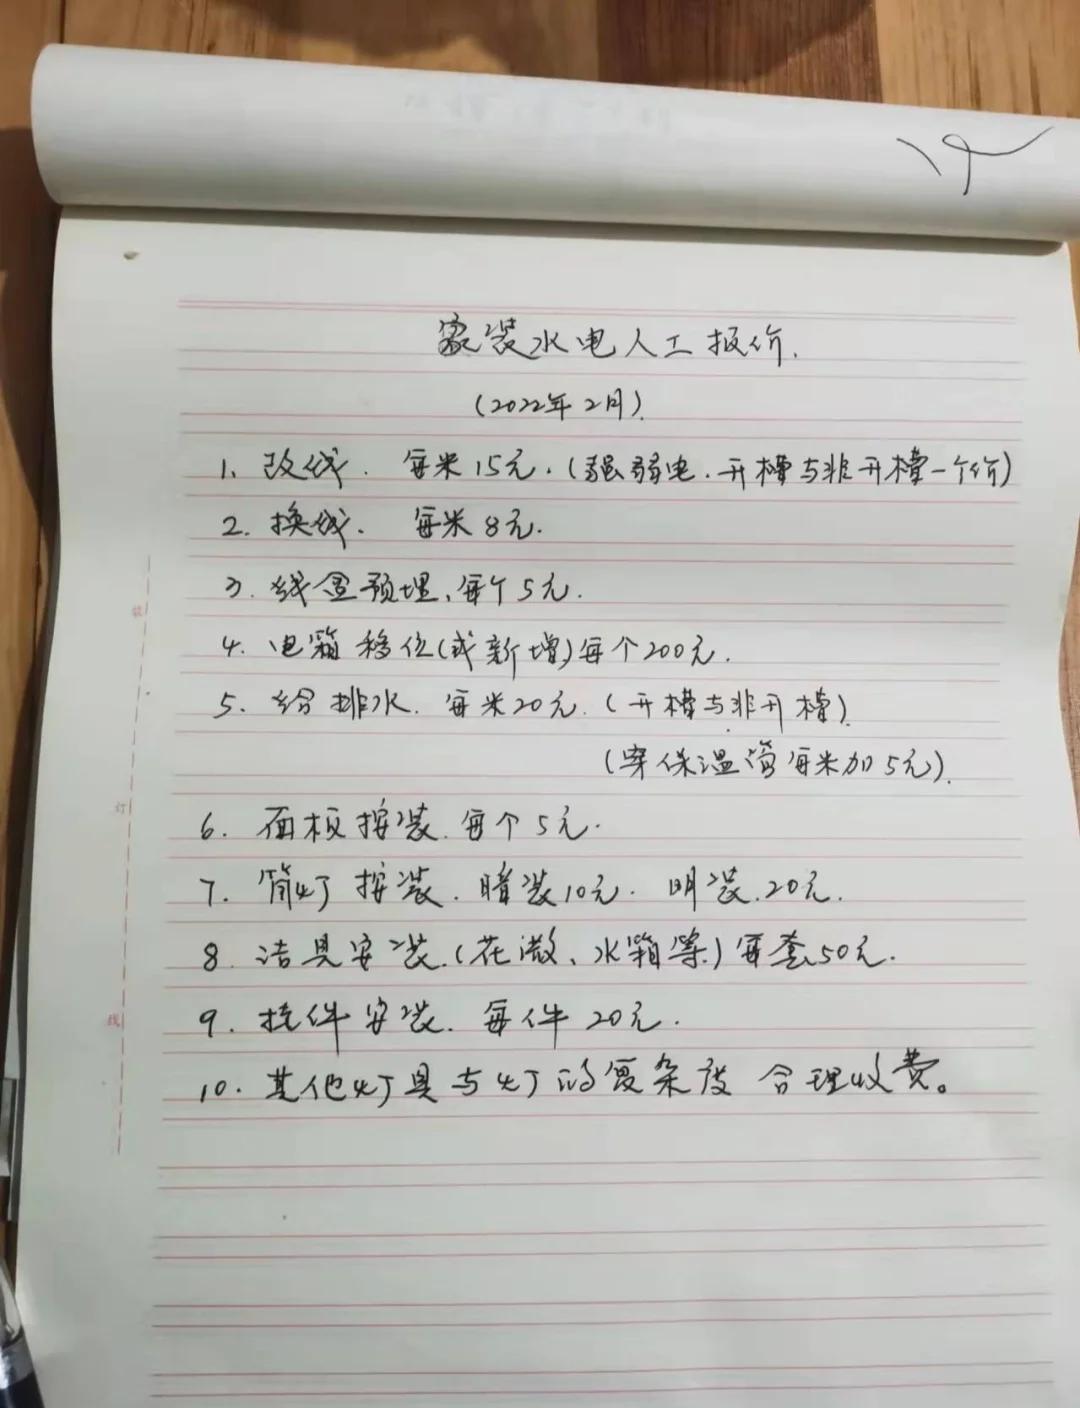 家装水电人工报价.
(2022年2月).
1. 改线. 每米15元.(强弱电.开槽与非开槽一个价)
2. 换线. 每米8元.
3. 线盒预埋、每个5元.
4. 电箱移位(或新增)每个200元.
5. 给排水. 每米20元.(开槽与非开槽).
(穿保温管每米加5元).
6. 面板按装.每个5元.
7. 筒灯按装.暗装10元. 明装.20元.
8. 洁具安装.(花洒、水箱等)每套50元.
9. 挂件安装. 每件20元.
10. 其他灯具与灯的复杂度 合理收费。
装
订
线